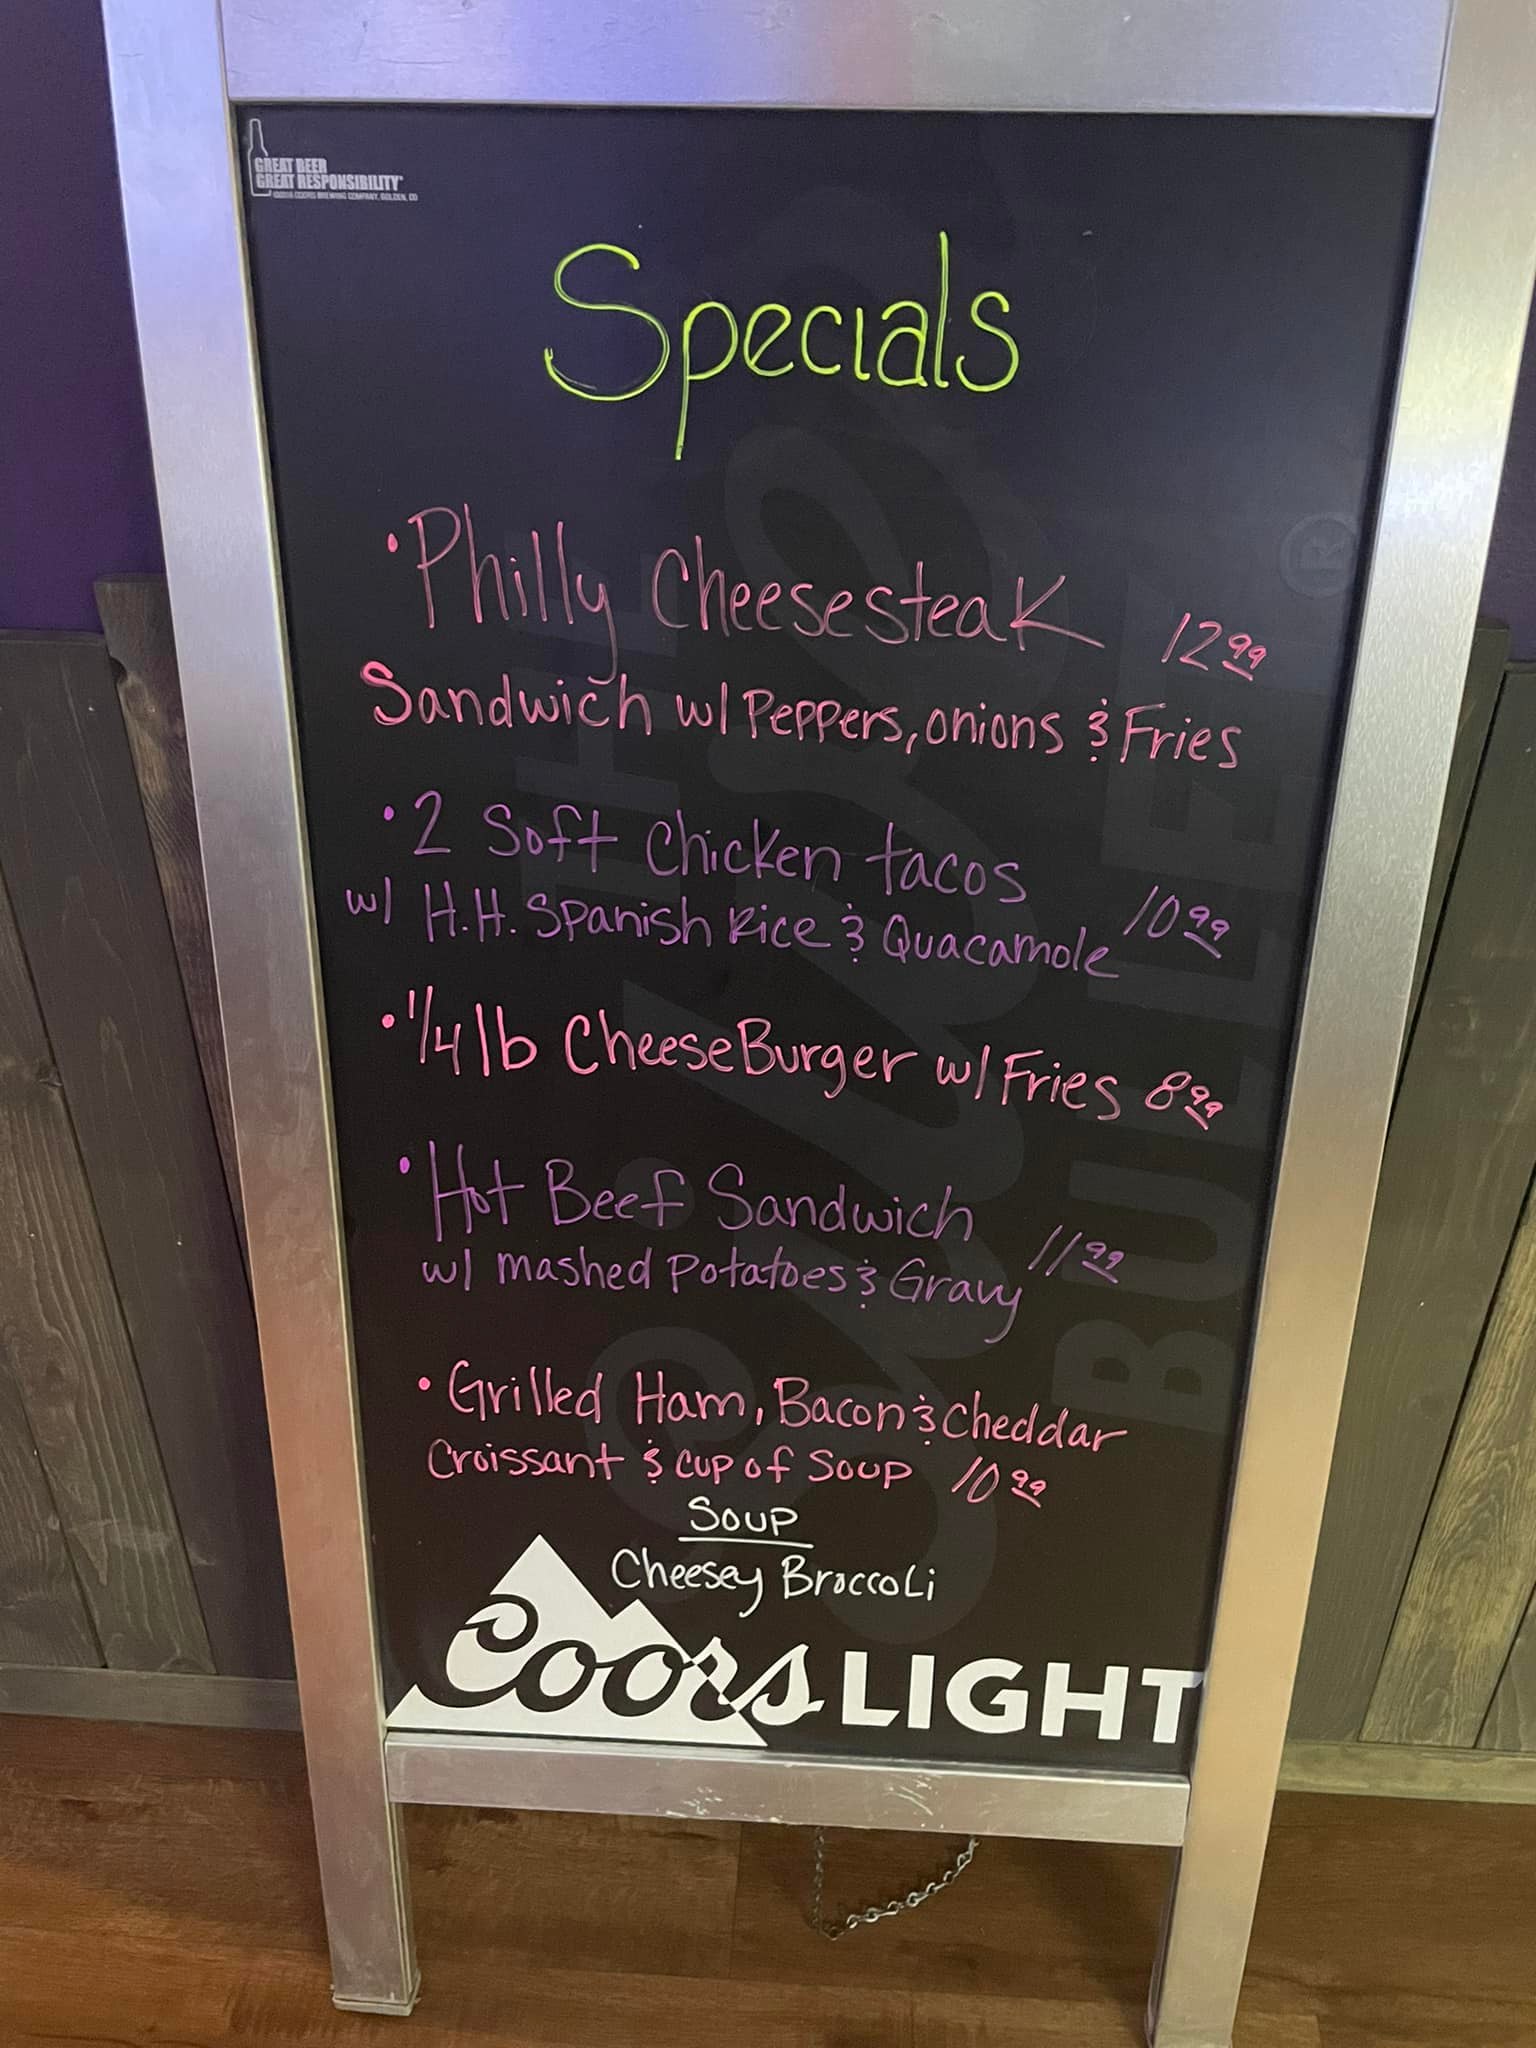 GREAT BEER
GREAT RESPONSIBILITY
Specials
• Philly Cheesesteak 12.99
Sandwich w/ Peppers, onions & Fries
• 2 Soft Chicken tacos
w/ H.H. Spanish Rice & Quacamole 10.99
• 1/4 lb CheeseBurger w/ Fries 8.99
• Hot Beef Sandwich
w/ mashed Potatoes & Gravy 11.99
• Grilled Ham, Bacon & Cheddar
Croissant & cup of Soup 10.99
Soup
Cheesey Broccoli
Coors LIGHT
THE
Silver
BULLET
®